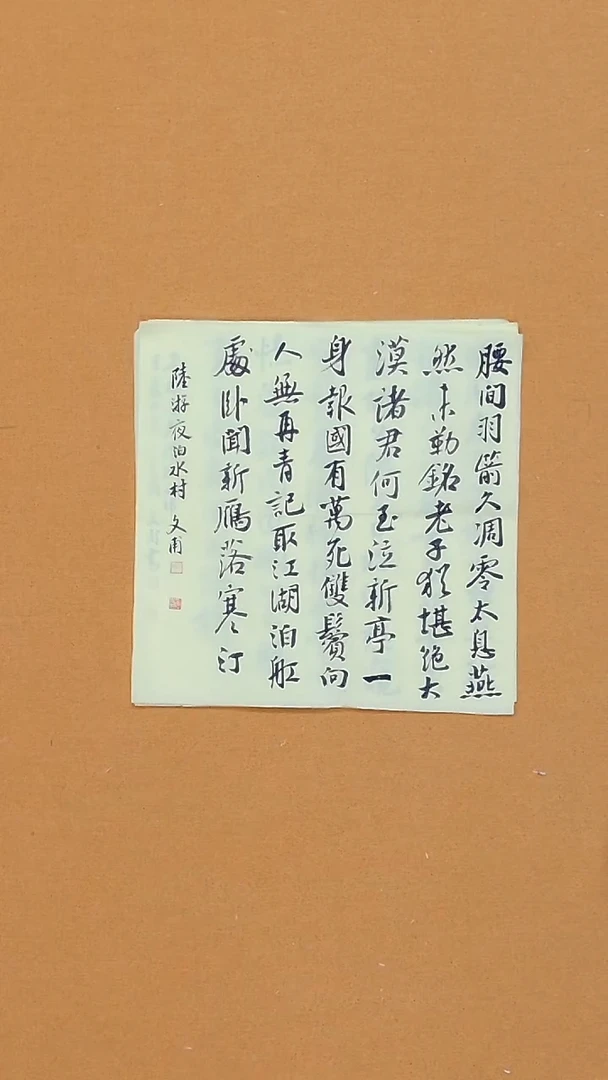 腰間羽箭久凋零太息燕
然未勒銘老子猶堪絶大
漠諸君何至泣新亭一
身報國有萬死雙鬢向
人無再青記取江湖泊舩
處卧聞新鴈落寒汀
陸游夜泊水村 文甫